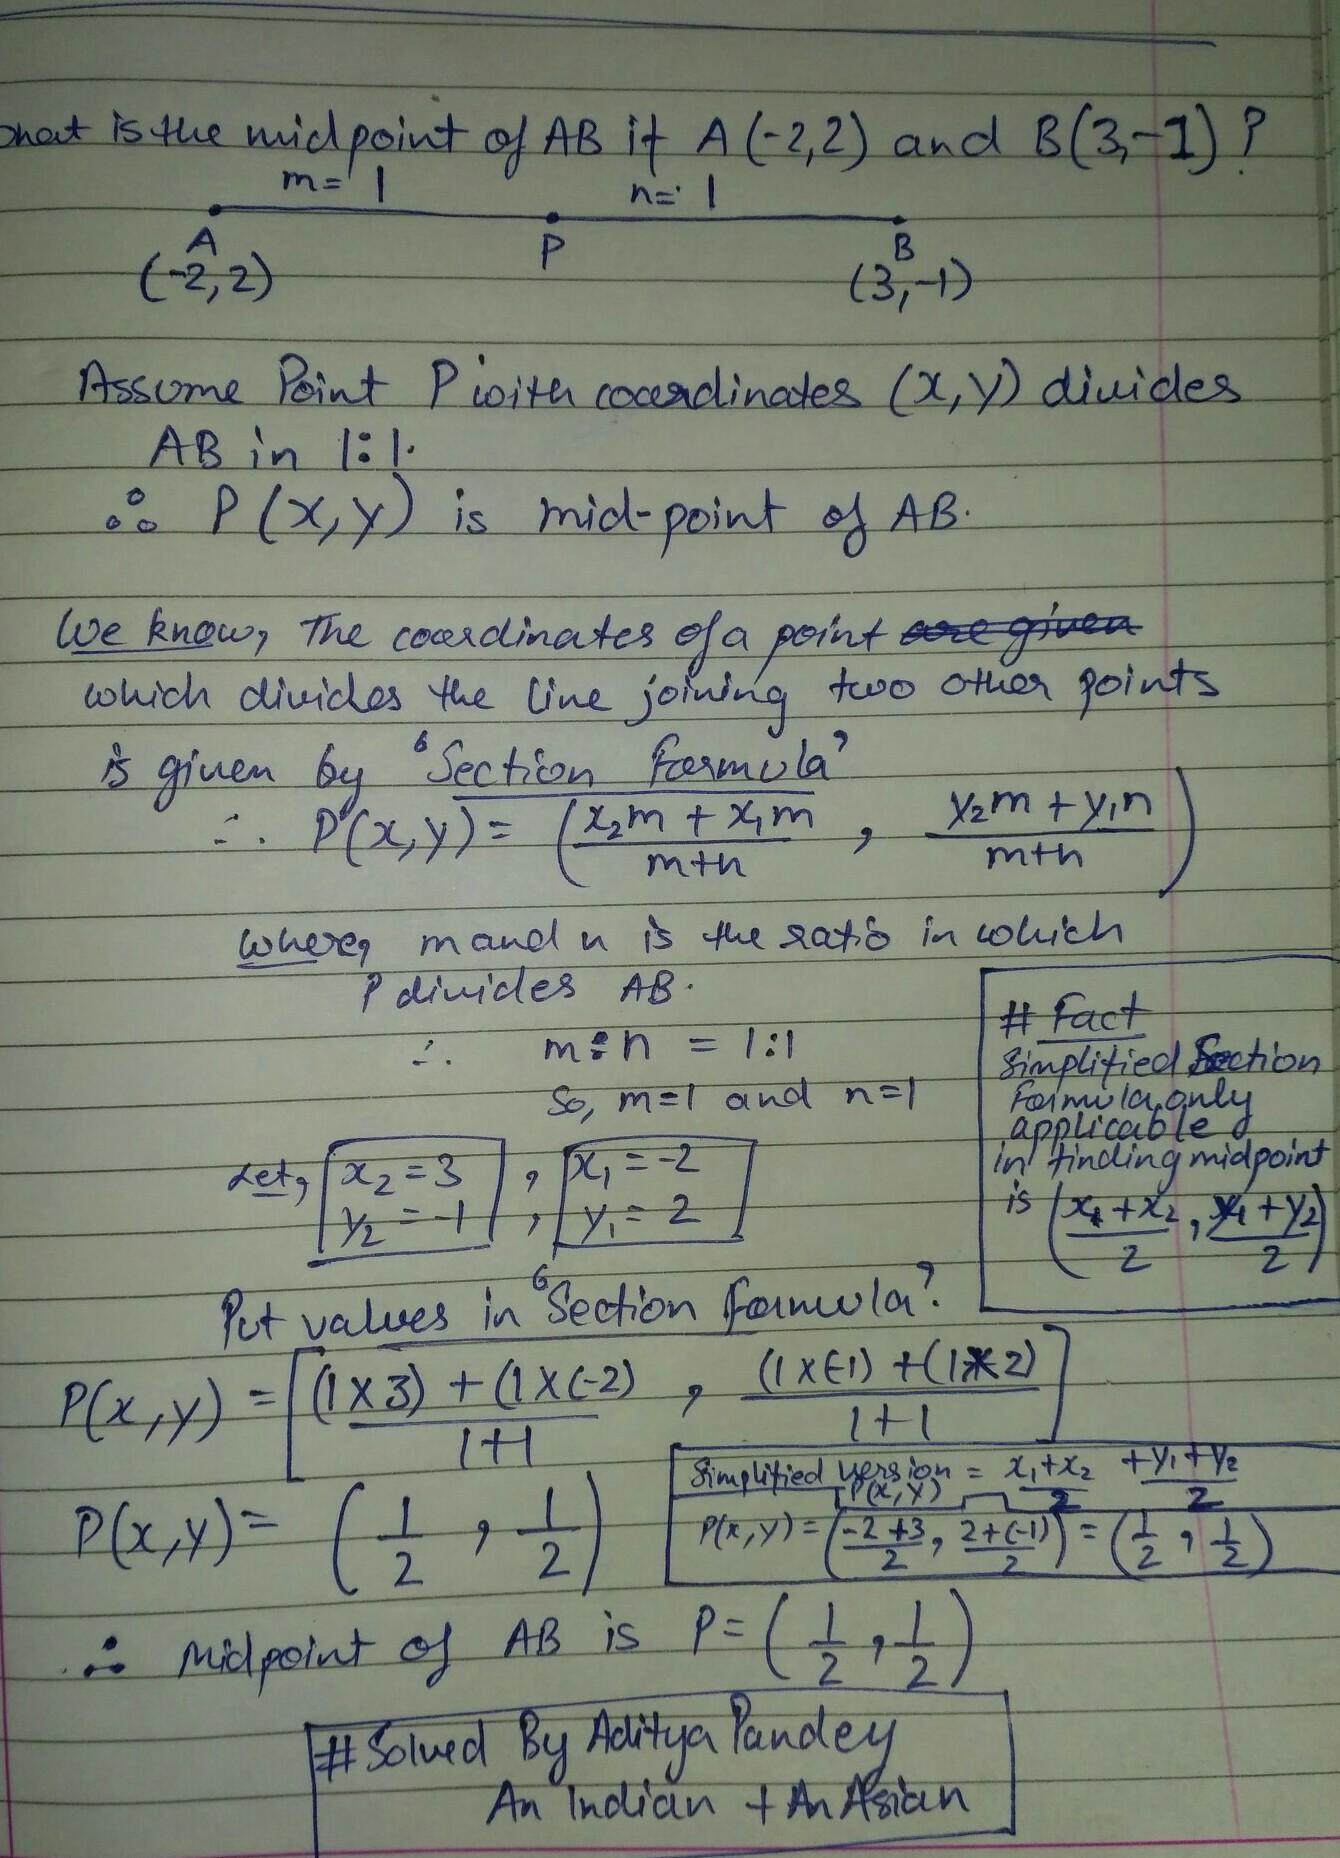 What is the midpoint of AB if A(-2,2) and B(3,-1)?
m= 1 n= 1
A P B
(-2,2) (3,-1)
Assume Point P with coordinates (x,y) divides
AB in 1:1.
∴ P(x,y) is mid-point of AB.
We know, The coordinates of a point are given
which divides the line joining two other points
is given by 'Section Formula'
∴ P(x,y) = (x₂m + x₁m / m+n , y₂m + y₁n / m+n)
where, m and n is the ratio in which
P divides AB.
∴ m:n = 1:1
So, m=1 and n=1
# Fact
Simplified Section
Formula only
applicable
in finding midpoint
is (x₁+x₂ / 2 , y₁+y₂ / 2)
Let, x₂=3 , x₁=-2
y₂=-1 , y₁=2
Put values in 'Section formula'.
P(x,y) = [(1×3) + (1×(-2) / 1+1 , (1×(-1) + (1×2) / 1+1]
P(x,y) = (1/2 , 1/2)
Simplified version = x₁+x₂ / 2 + y₁+y₂ / 2
P(x,y)
P(x,y) = (-2+3 / 2 , 2+(-1) / 2) = (1/2 , 1/2)
∴ Midpoint of AB is P= (1/2 , 1/2)
#Solved By Aditya Pandey
An Indian + An Asian